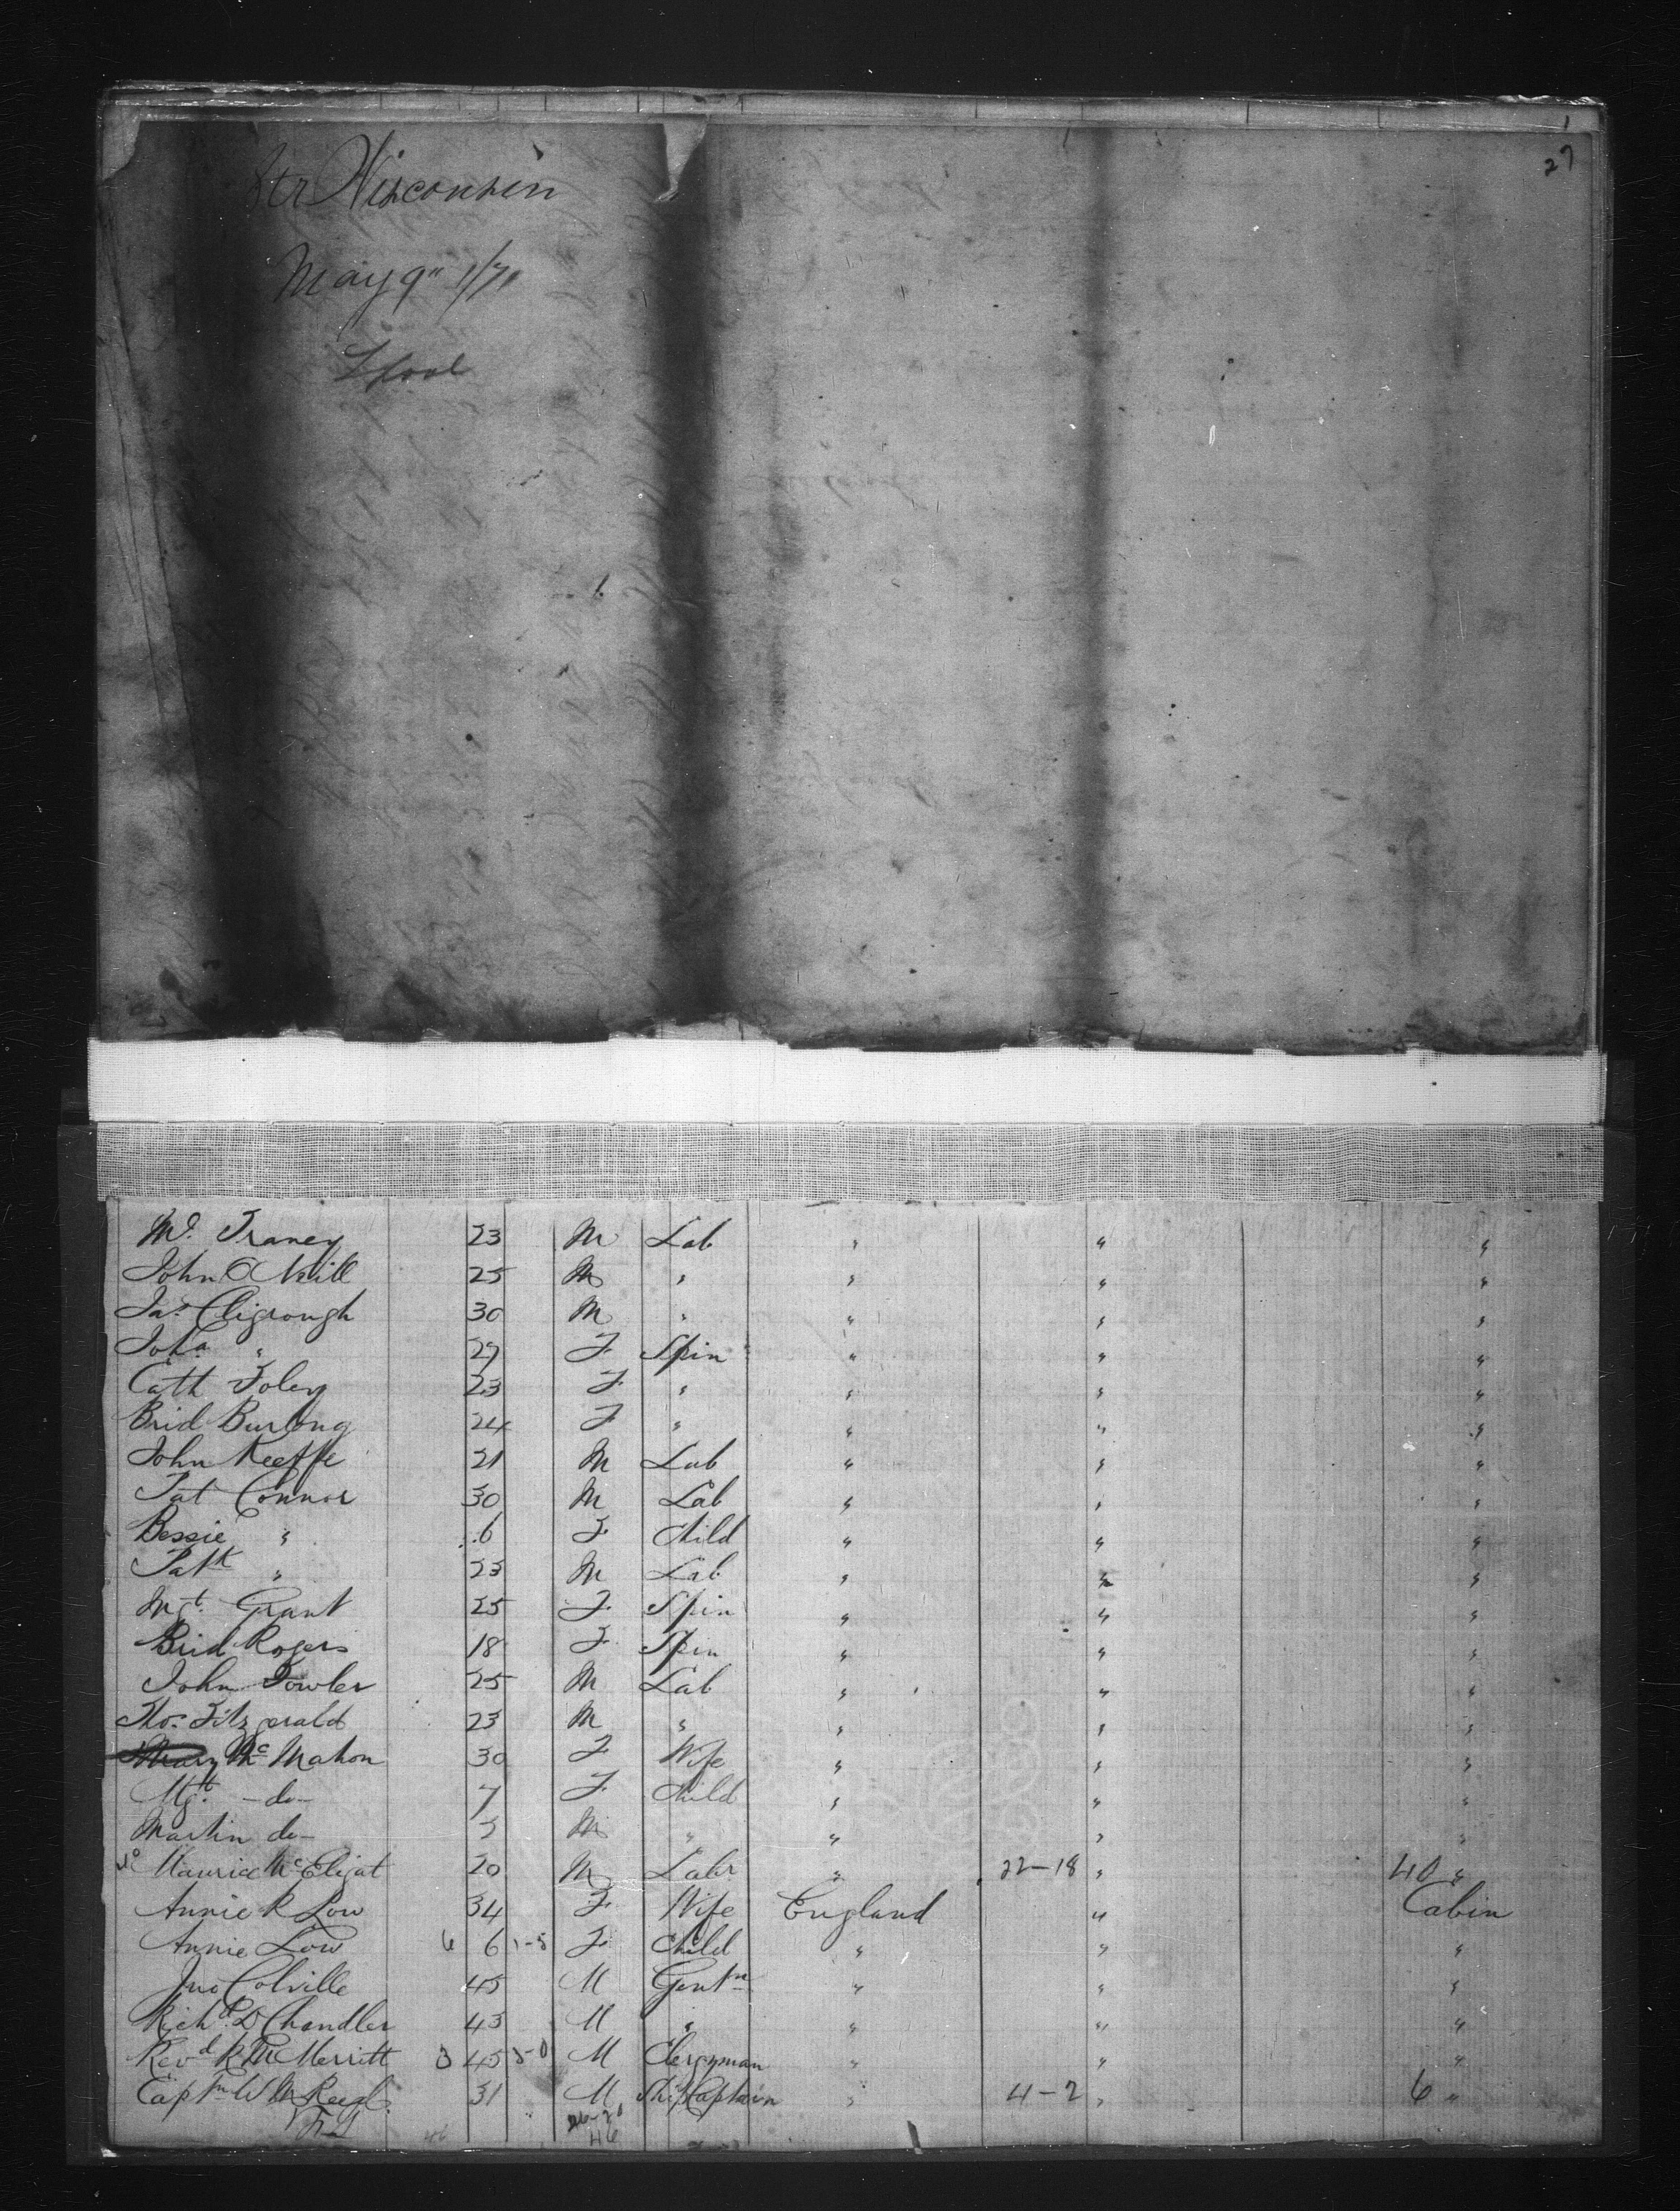 27
Str Wisconsin
May 9" 1/71
Lpool
Ml. Traney 23 M Lab " " "
John O Neill 25 M " " " "
Jas. Cligrough 30 M " " " "
Joha " 29 F Spin " " "
Cath Foley 23 F " " " "
Brid Burlong 24 F " " " "
John Keeffe 21 M Lab " " "
Pat Connor 30 M Lab " " "
Bessie " 6 F Child " " "
Patk " 23 M Lab " " "
Mgt. Grant 25 F Spin " " "
Brid Rogers 18 F Spin " " "
John Fowler 25 M Lab " " "
Thos. Fitzgerald 23 M " " " "
Mary Mc Mahon 30 F Wife " " "
Mgt. -do- 7 F Child " " "
Martin do- 3 M " " " "
Maurice Mc Eligat 20 M Labr " 22-18 " 40 "
Annie R Low 34 F Wife England " Cabin
Annie Low 6 6 1-5 F Child " " "
Jno Colville 45 M Gentn " " "
Richd. D Chandler 43 M " " " "
Revd R Mc Merritt 3 45 3-0 M Clergyman " " "
Captn W M 31 M Ship Captain " 4-2 " 6 "
26-20
46 46